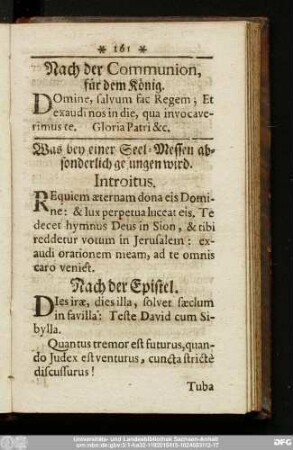 * 161 *
Nach der Communion,
für dem König.
DOmine, salvum fac Regem; Et
exaudi nos in die, qua invocave-
rimus te. Gloria Patri &c.
Was bey einer Seel-Messen ab-
sonderlich ge ungen wird.
Introitus.
REquiem æternam dona eis Domi-
ne: & lux perpetua luceat eis. Te
decet hymnus Deus in Sion, & tibi
reddetur votum in Jerusalem: ex-
audi orationem meam, ad te omnis
caro veniet.
Nach der Epistel.
DIes iræ, dies illa, solvet sæclum
in favilla: Teste David cum Si-
bylla.
Quantus tremor est futurus, quan-
do Judex est venturus, cuncta strictè
discussurus!
Tuba
Universitäts- und Landesbibliothek Sachsen-Anhalt
DFG